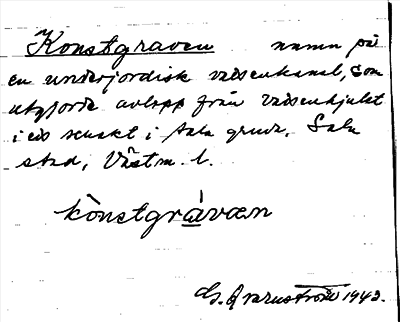 Konstgraven namn på
en underjordisk vattenkanal, som
utgjorde avlopp från vattenhjulet
i ett schakt i Sala gruva, Sala
stad, Västm. l.
kònstgrávæn
G. Qvarnström 1943.